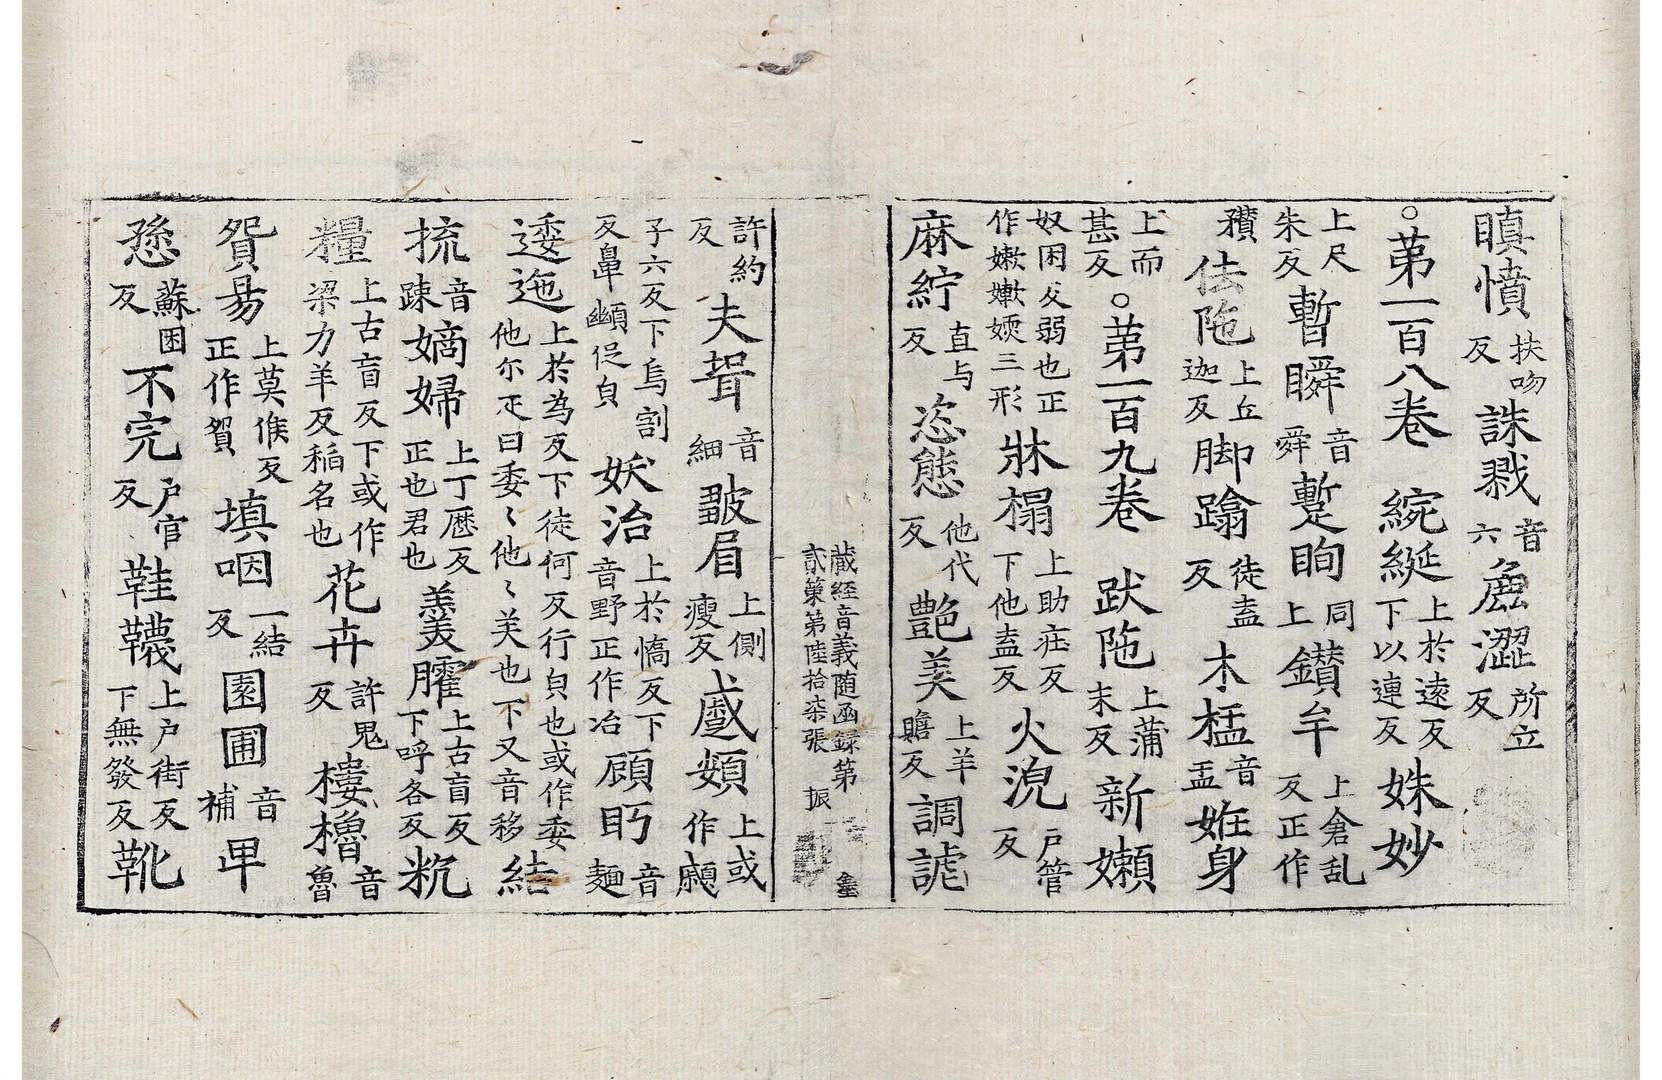 瞋憤扶吻反誅戮音六麁澀所立反
○苐一百八卷 綩綖上於逺反下以連反姝妙
上尺朱反暫瞬音舜蹔眴同上鑚牟上倉乱反正作
䂎佉陁上丘迦反脚䠾徒盍反木㮎音盂姙身
上而甚反○苐一百九卷 䟦陁上蒲末反新嬾
奴困反弱也正作嫩㜛媆三形牀榻上助庄反下他盍反火涀戸管反
麻紵直与反恣態他代反艶美上羊贍反調謔
許約反夫壻音細皺眉上側瘦反蹙頞上或作顣
子六反下烏割反鼻㡫促皃妖治上於憍反下音野正作冶頋眄音麵
逶迤上於為反下徒何反行皃也或作委他尒疋曰委〻他〻美也下又音移結
梳音踈嫡婦上丁歷反正也君也羹臛上古盲反下呼各反粇
糧上古盲反下或作粱力羊反稲名也花卉許鬼反樓櫓音魯
貿易上莫候反正作貿填咽一結反園圃音補𤰞
愻蘇困反不完戸官反鞋韈上戸街反下無發反靴
藏経音義随函録第貳第陸拾柒張 振